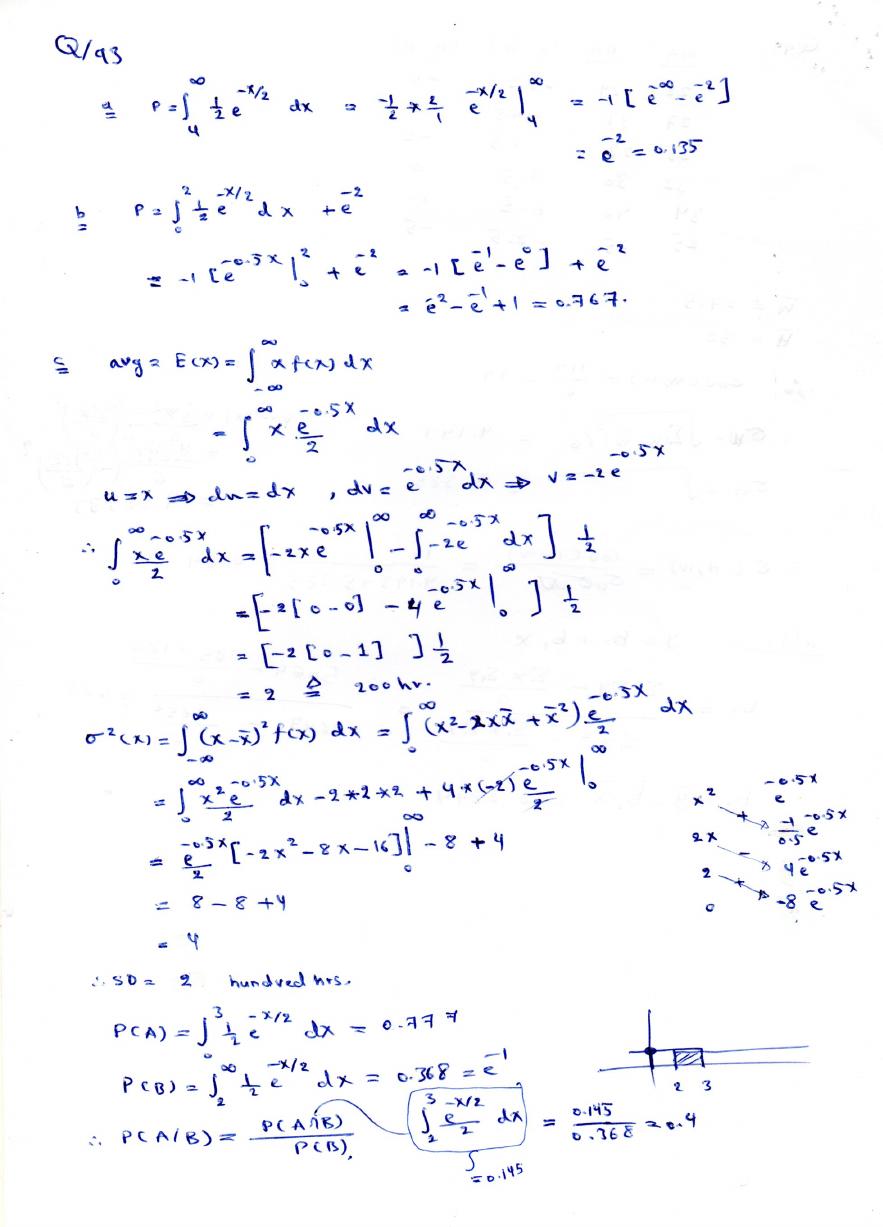 Q/93
a P = ∫₄^∞ 1/2 e^{-x/2} dx = -1/2 * 2/1 e^{-x/2} |₄^∞ = -1 [ e^{-∞} - e^{-2} ]
= e^{-2} = 0.135
b P = ∫₀² 1/2 e^{-x/2} dx + e^{-2}
= -1 [ e^{-0.5x} |₀² + e^{-2} = -1 [ e^{-1} - e^0 ] + e^{-2}
= e^{-2} - e^{-1} + 1 = 0.767.
c avg = E(x) = ∫_{-∞}^∞ x f(x) dx
= ∫₀^∞ x e^{-0.5x}/2 dx
u = x ⇒ du = dx , dv = e^{-0.5x} dx ⇒ v = -2e^{-0.5x}
∴ ∫₀^∞ xe^{-0.5x}/2 dx = [ -2xe^{-0.5x} |₀^∞ - ∫₀^∞ -2e^{-0.5x} dx ] 1/2
= [ -2[0-0] - 4 e^{-0.5x} |₀^∞ ] 1/2
= [ -2 [0-1] ] 1/2
= 2 ≙ 200 hr.
σ²(x) = ∫_{-∞}^∞ (x-x̄)² f(x) dx = ∫₀^∞ (x² - 2xx̄ + x̄²) e^{-0.5x}/2 dx
= ∫₀^∞ x² e^{-0.5x}/2 dx - 2*2*2 + 4*(-2) e^{-0.5x}/2 |₀^∞
= e^{-0.5x}/2 [ -2x² - 8x - 16 ] |₀^∞ - 8 + 4
= 8 - 8 + 4
= 4
x² e^{-0.5x}
+ -1/0.5 e^{-0.5x}
2x
- 4e^{-0.5x}
2 + -8 e^{-0.5x}
0
∴ SD = 2 hundred hrs.
P(A) = ∫₀³ 1/2 e^{-x/2} dx = 0.777
P(B) = ∫₂^∞ 1/2 e^{-x/2} dx = 0.368 = e^{-1}
2 3
∴ P(A/B) = P(A∩B)/P(B) ∫₂³ e^{-x/2}/2 dx = 0.145/0.368 = 0.4
= 0.145